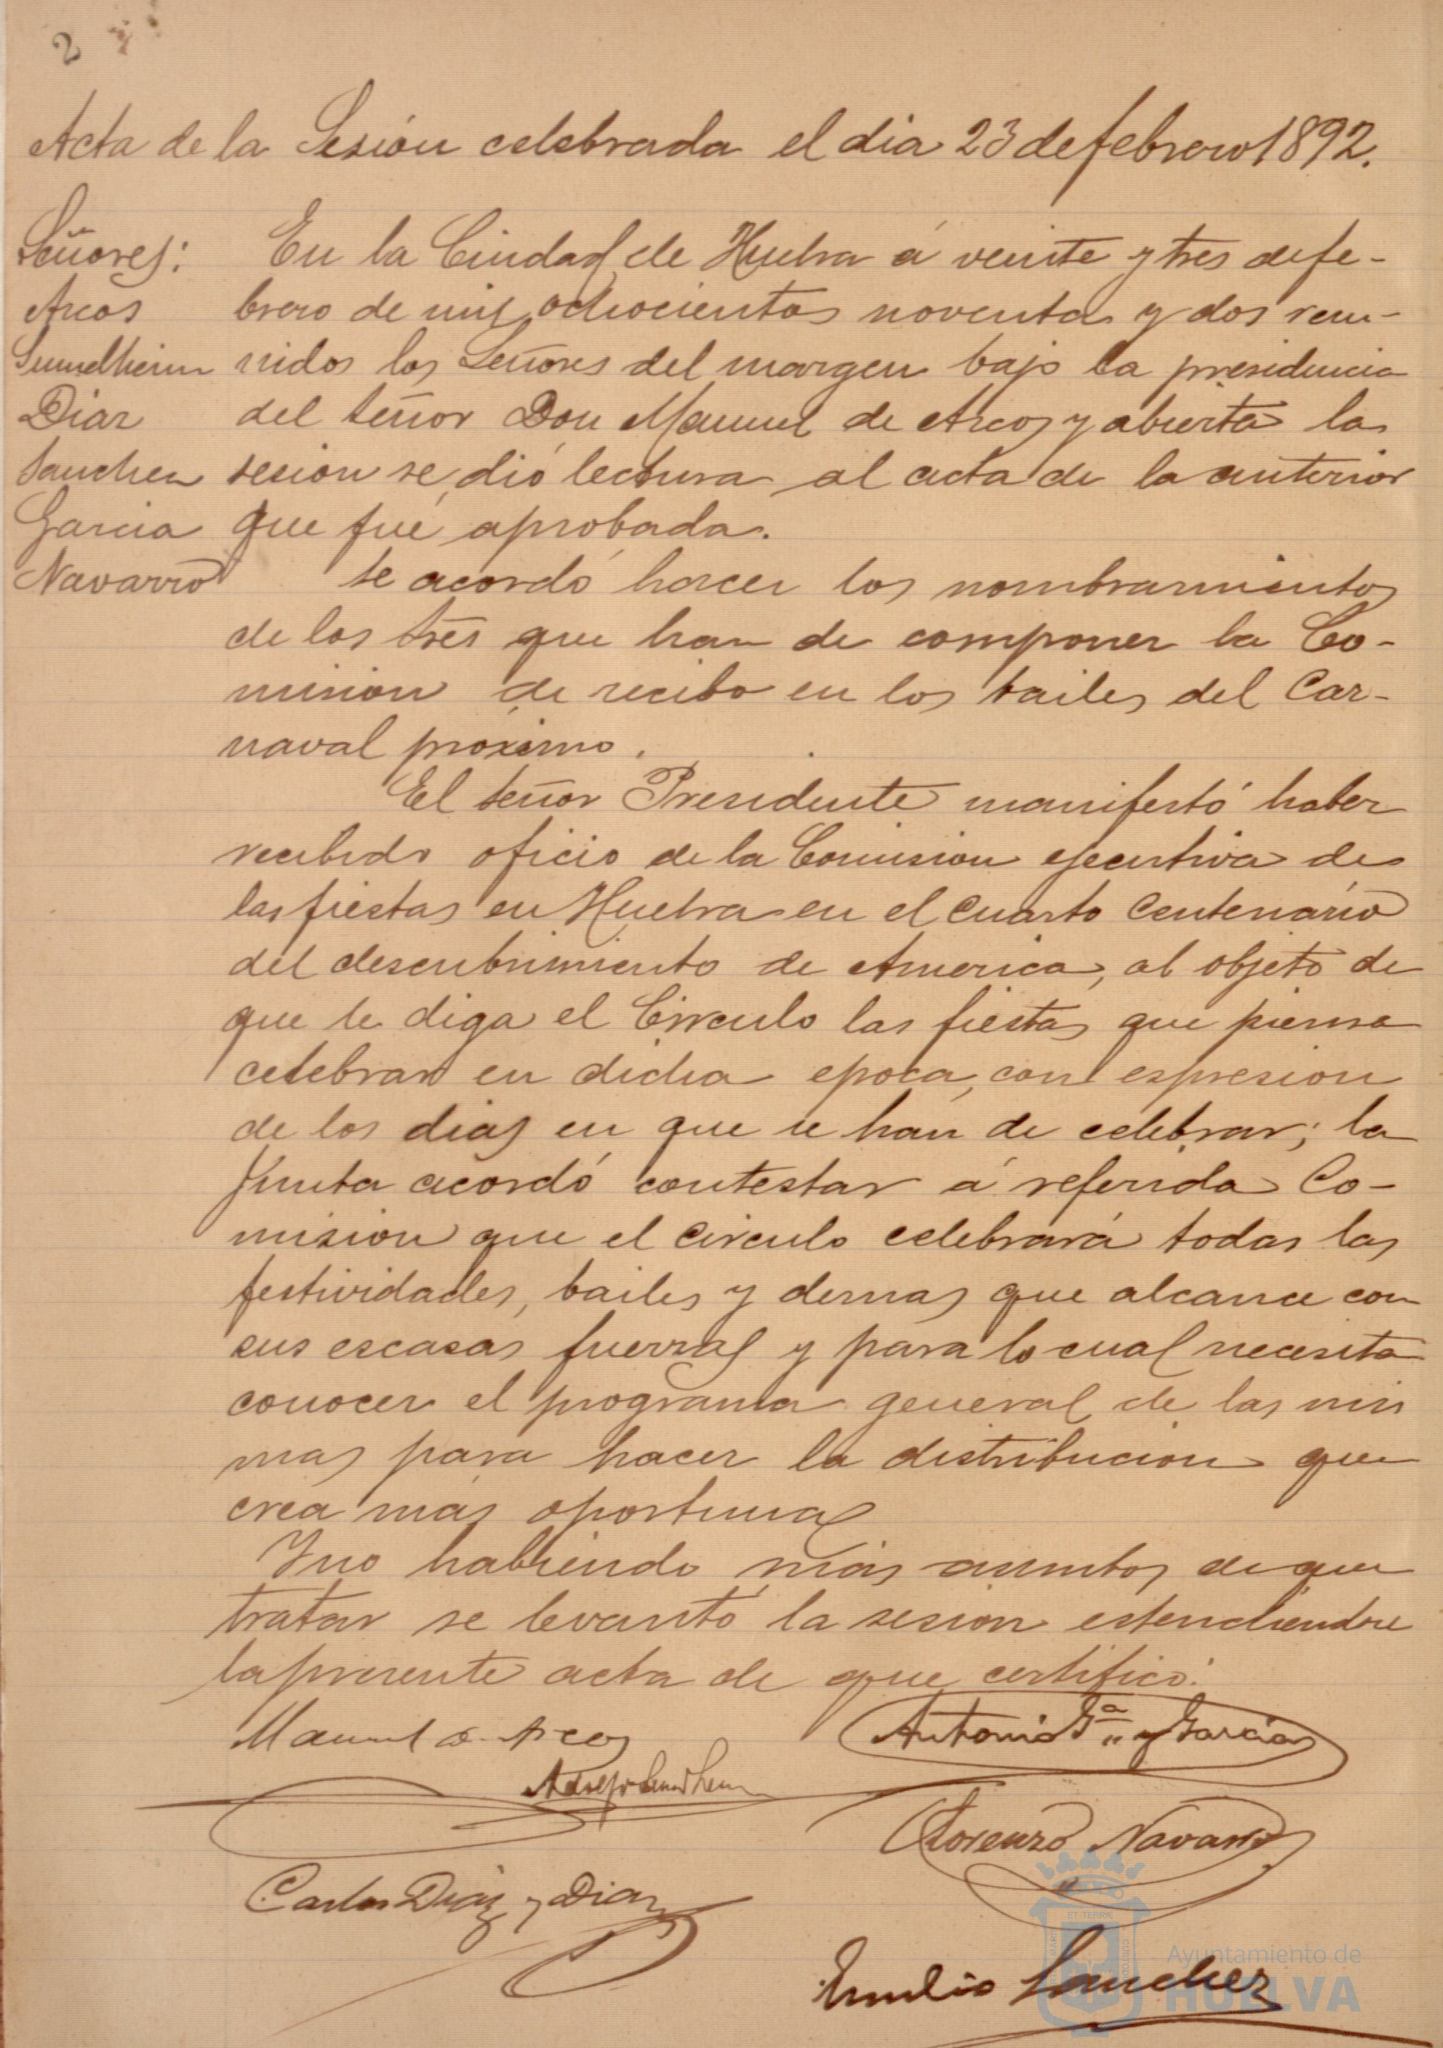 2
Acta de la Sesión celebrada el dia 23 de febrero 1892.
Señores:
Arcos
Sundheim
Diaz
Sanchez
Garcia
Navarro
En la Ciudad de Huelva á veinte y tres de fe-
brero de mil ochocientos noventa y dos reu-
nidos los Señores del margen bajo la presidencia
del señor Don Manuel de Arcos y abierta la
sesion se dió lectura al acta de la anterior
que fué aprobada.
Se acordó hacer los nombramientos
de los tres que han de componer la Co-
mision de recibo en los bailes del Car-
naval próximo.
El señor Presidente manifestó haber
recibido oficio de la Comision ejecutiva de
las fiestas en Huelva en el cuarto Centenario
del descubrimiento de America, al objeto de
que le diga el Circulo las fiestas que piensa
celebrar en dicha epoca, con espresion
de los dias en que se han de celebrar; la
Junta acordó contestar á referida Co-
mision que el circulo celebrará todas las
festividades, bailes y demas que alcance con
sus escasas fuerzas y para lo cual necesita
conocer el programa general de las mis
mas para hacer la distribucion que
crea más oportuna
Y no habiendo más asuntos de que
tratar se levantó la sesion estendiendose
la presente acta de que certifico.
Manuel de Arcos
Antonio Gª y Garcia
Adolfo Sundheim
Lorenzo Navarro
Carlos Diaz y Diaz
Emilio Sanchez
Ayuntamiento de
HUELVA